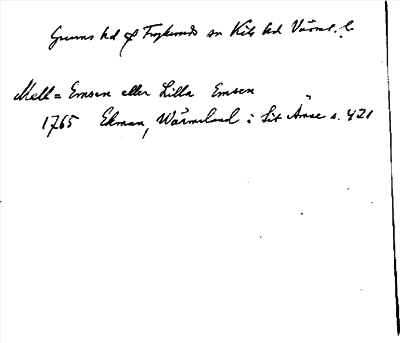 Grums hd o Frykeruds sn Kils hd Värml. l.
Mell = Emsen eller Lilla Emsen
1765 Ekman, Wärmeland i Sit Ämne s. 421